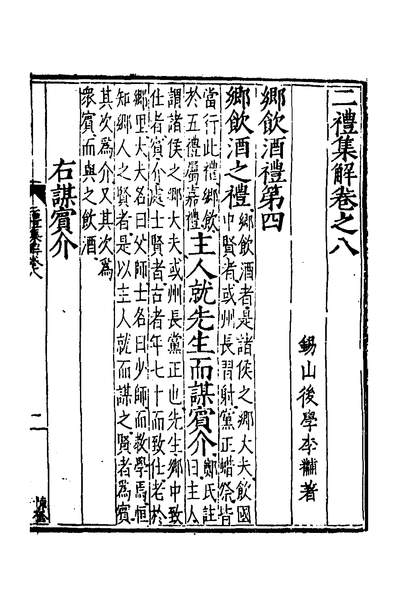 二禮集解卷之八
錫山後學李黼著
鄉飲酒禮第四
鄉飲酒之禮
鄉飲酒者是諸侯之鄉大夫飲國
中賢者或州長習射黨正蜡祭皆
當行此禮鄉飲
於五禮屬嘉禮
主人就先生而謀賓介
鄭氏註
曰主人
謂諸侯之鄉大夫或州長黨正也先生鄉中致
仕者賓介處士賢者古者年七十而致仕老於
鄉里大夫名曰父師士名曰少師而教學焉恒
知鄉人之賢者是以主人就而謀之賢者為賓
其次為介又其次為
衆賓而與之飲酒
右謀賓介
二